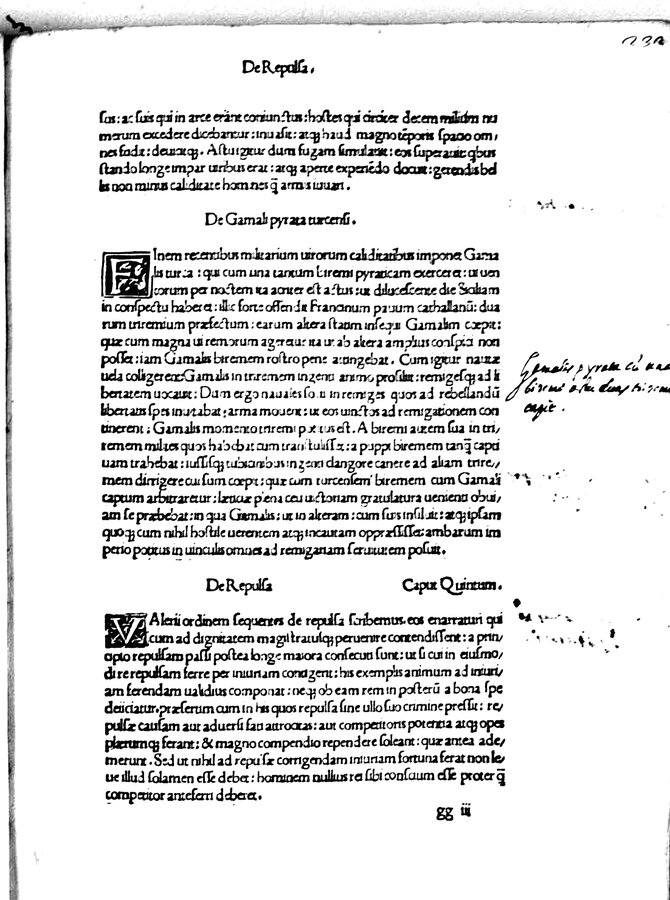 De Repulsa.
sus: ac suis qui in arce erant coniunctus: hostes qui circiter decem milium nu
merum excedere dicebantur: inuasit: atqȝ haud magno tēporis spacio om/
nes fudit: deuicitqȝ. Astu igitur dum fugam simularit: eos superauit: qbus
stando longe impar uiribus erat: atqȝ aperte experiēdo docuit: gerendis bel
lis non minus caliditate homines q̄ armis iuuari.
De Gamali pyrata turcensi.
FInem recentibus militarium uirorum caliditatibus imponet Gama
lis turca: qui cum una tantum biremi pyraticam exerceret: ut uen
torum per noctem ita acriter est actus: ut dilucescente die Siciliam
in conspectu haberet: illic forte offendit Francinum pauum cathallanū: dua
rum triremium præfectum: earum altera statim insequi Gamalim coepit:
quæ cum magna ui remorum ageretur: ita ut ab altera amplius conspici non
posset: iam Gamalis biremem rostro pene attingebat. Cum igitur nautæ
uela colligerent: Gamalis in triremem ingenti animo prosiluit: remigesqȝ ad li
bertatem uocauit: Dum ergo nauales socii in remiges quos ad rebellandū
libertatis spes inuitabat: arma mouent: ut eos uinctos ad remigationem con
tinerent: Gamalis momento triremi potitus est. A biremi autem sua in tri,
remem milites quos habebat cum transtulisset: a puppi biremem tanq̄ capti
uam trahebat: iussisqȝ tubicinibus ingenti clangore canere ad aliam trire,
mem dirrigere cursum coepit: quæ cum turcensem biremem cum Gamali
captum arbitraretur: lætitiæ plena ceu uictoriam gratulatura uenienti obui,
am se præbebat: in qua Gamalis: ut in alteram: cum suis insiluit: atqȝ ipsam
quoqȝ cum nihil hostile uerentem atqȝ incautam oppræssisset: ambarum im
perio potitus in uinculis omnes ad remigandum seruitutem posuit.
Gamalis pyrata cū una
biremi duas trireme
capit.
De Repulsa Caput Quintum.
VAlerii ordinem sequentes de repulsa scribemus. eos enarraturi qui
cum ad dignitatem magistratusqȝ peruenire contendissent: a prin,
cipio repulsam passi postea longe maiora consecuti sunt: ut si cui in eiusmo,
di re repulsam ferre per iniuriam contigent: his exemplis animum ad iniuri,
am ferendam ualidius componat: neqȝ ob eam rem in posterū a bona spe
deiiciatur. præsertim cum in his quos repulsa sine ullo suo crimine pressit: re,
pulsæ causam aut aduersi fati atrocitas: aut competitoris potentia atqȝ opes
plærumqȝ ferant: & magno compendio rependere soleant: quæ antea ade,
merunt. Sed ut nihil ad repulsæ corrigendam iniuriam fortuna ferat non le,
ue illud solamen esse debet: hominem nullius rei sibi conscium esse propter q̄
competitor anteferri deberet.
gg iii